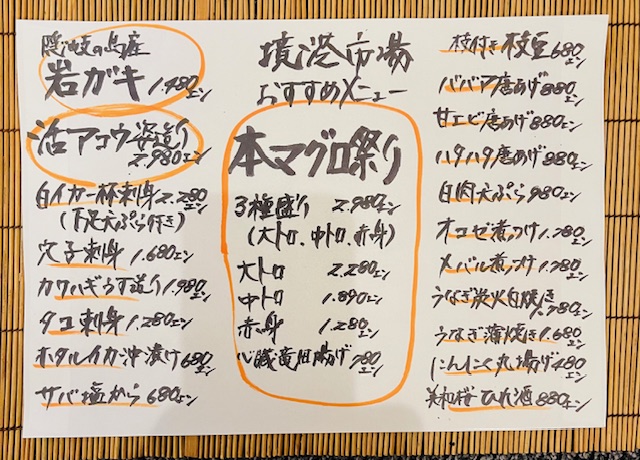 隠岐の島産
岩ガキ 1,480エン
活アコウ姿造り
2,980エン
白イカ一杯刺身 2,280エン
(下足天ぷら付き)
穴子刺身 1,680エン
カワハギうす造り 1,980エン
タコ刺身 1,280エン
ホタルイカ沖漬け 680エン
サバ塩から 680エン
境港市場
おすすめメニュー
本マグロ祭り
3種盛り 2,980エン
(大トロ、中トロ、赤身)
大トロ 2,280エン
中トロ 1,890エン
赤身 1,280エン
心臓竜田揚げ 780エン
枝付き枝豆 680エン
ババア唐あげ 880エン
甘エビ唐あげ 880エン
ハタハタ唐あげ 880エン
白肉天ぷら 980エン
オコゼ煮つけ 1,780エン
メバル煮つけ 1,780エン
うなぎ炭火白焼き
1,780エン
うなぎ蒲焼き 1,680エン
にんにく丸揚げ 480エン
美和桜ひれ酒 880エン